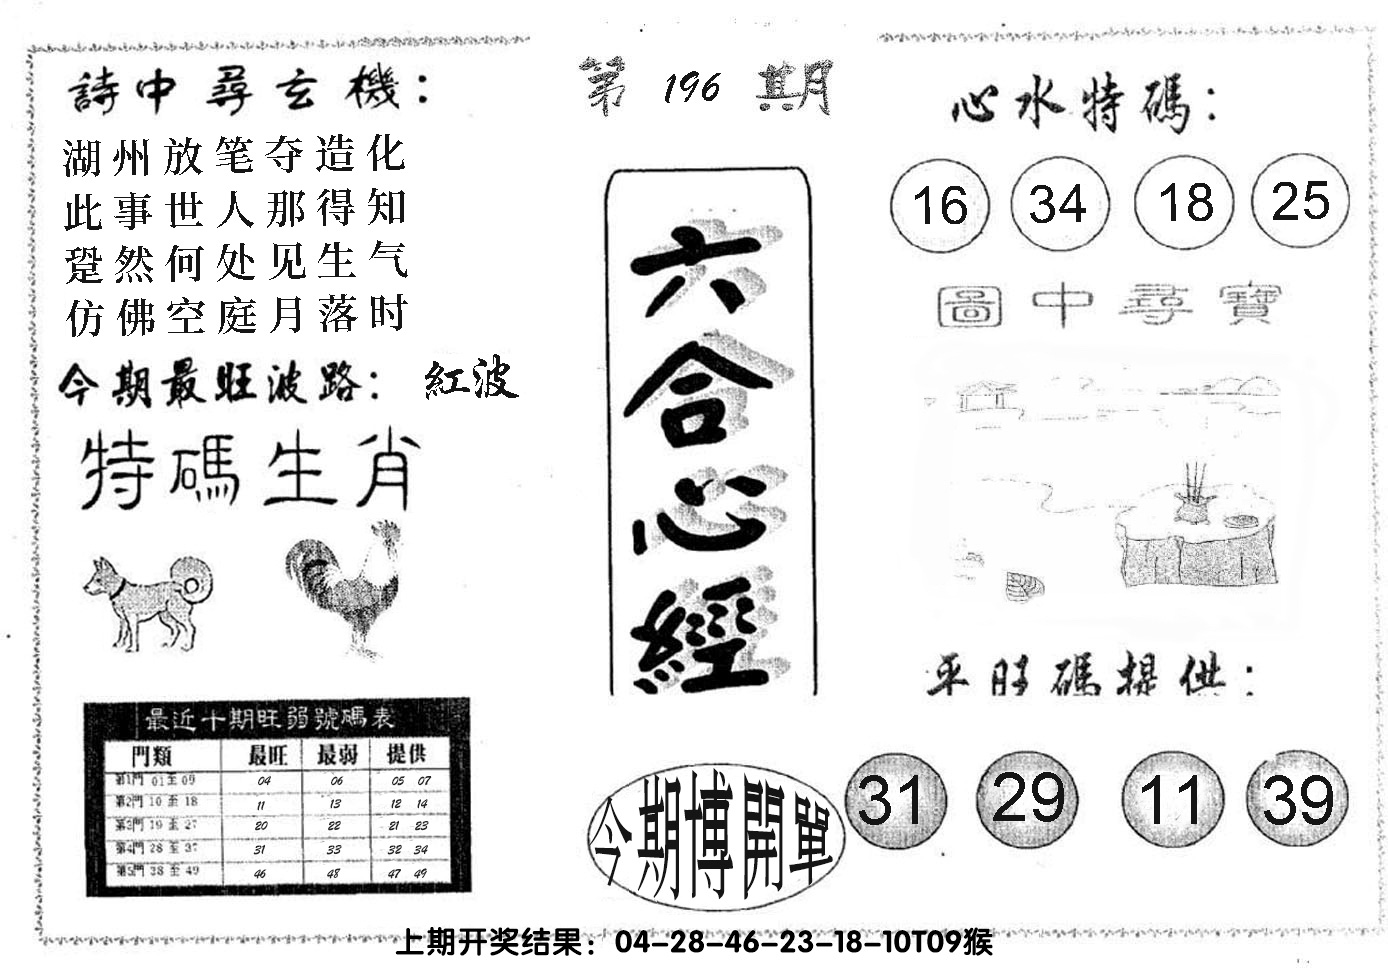 詩中尋玄機：
湖州放笔夺造化
此事世人那得知
跫然何处见生气
仿佛空庭月落时
今期最旺波路： 紅波
特碼生肖
最近十期旺弱號碼表
門類 最旺 最弱 提供
第1門 01至09 04 06 05 07
第2門 10至18 11 13 12 14
第3門 19至27 20 22 21 23
第4門 28至37 31 33 32 34
第5門 38至49 46 48 47 49
第196期
六合心經
今期博開單
心水特碼：
16 34 18 25
圖中尋寶
平旺碼提供：
31 29 11 39
上期开奖结果：04-28-46-23-18-10T09猴